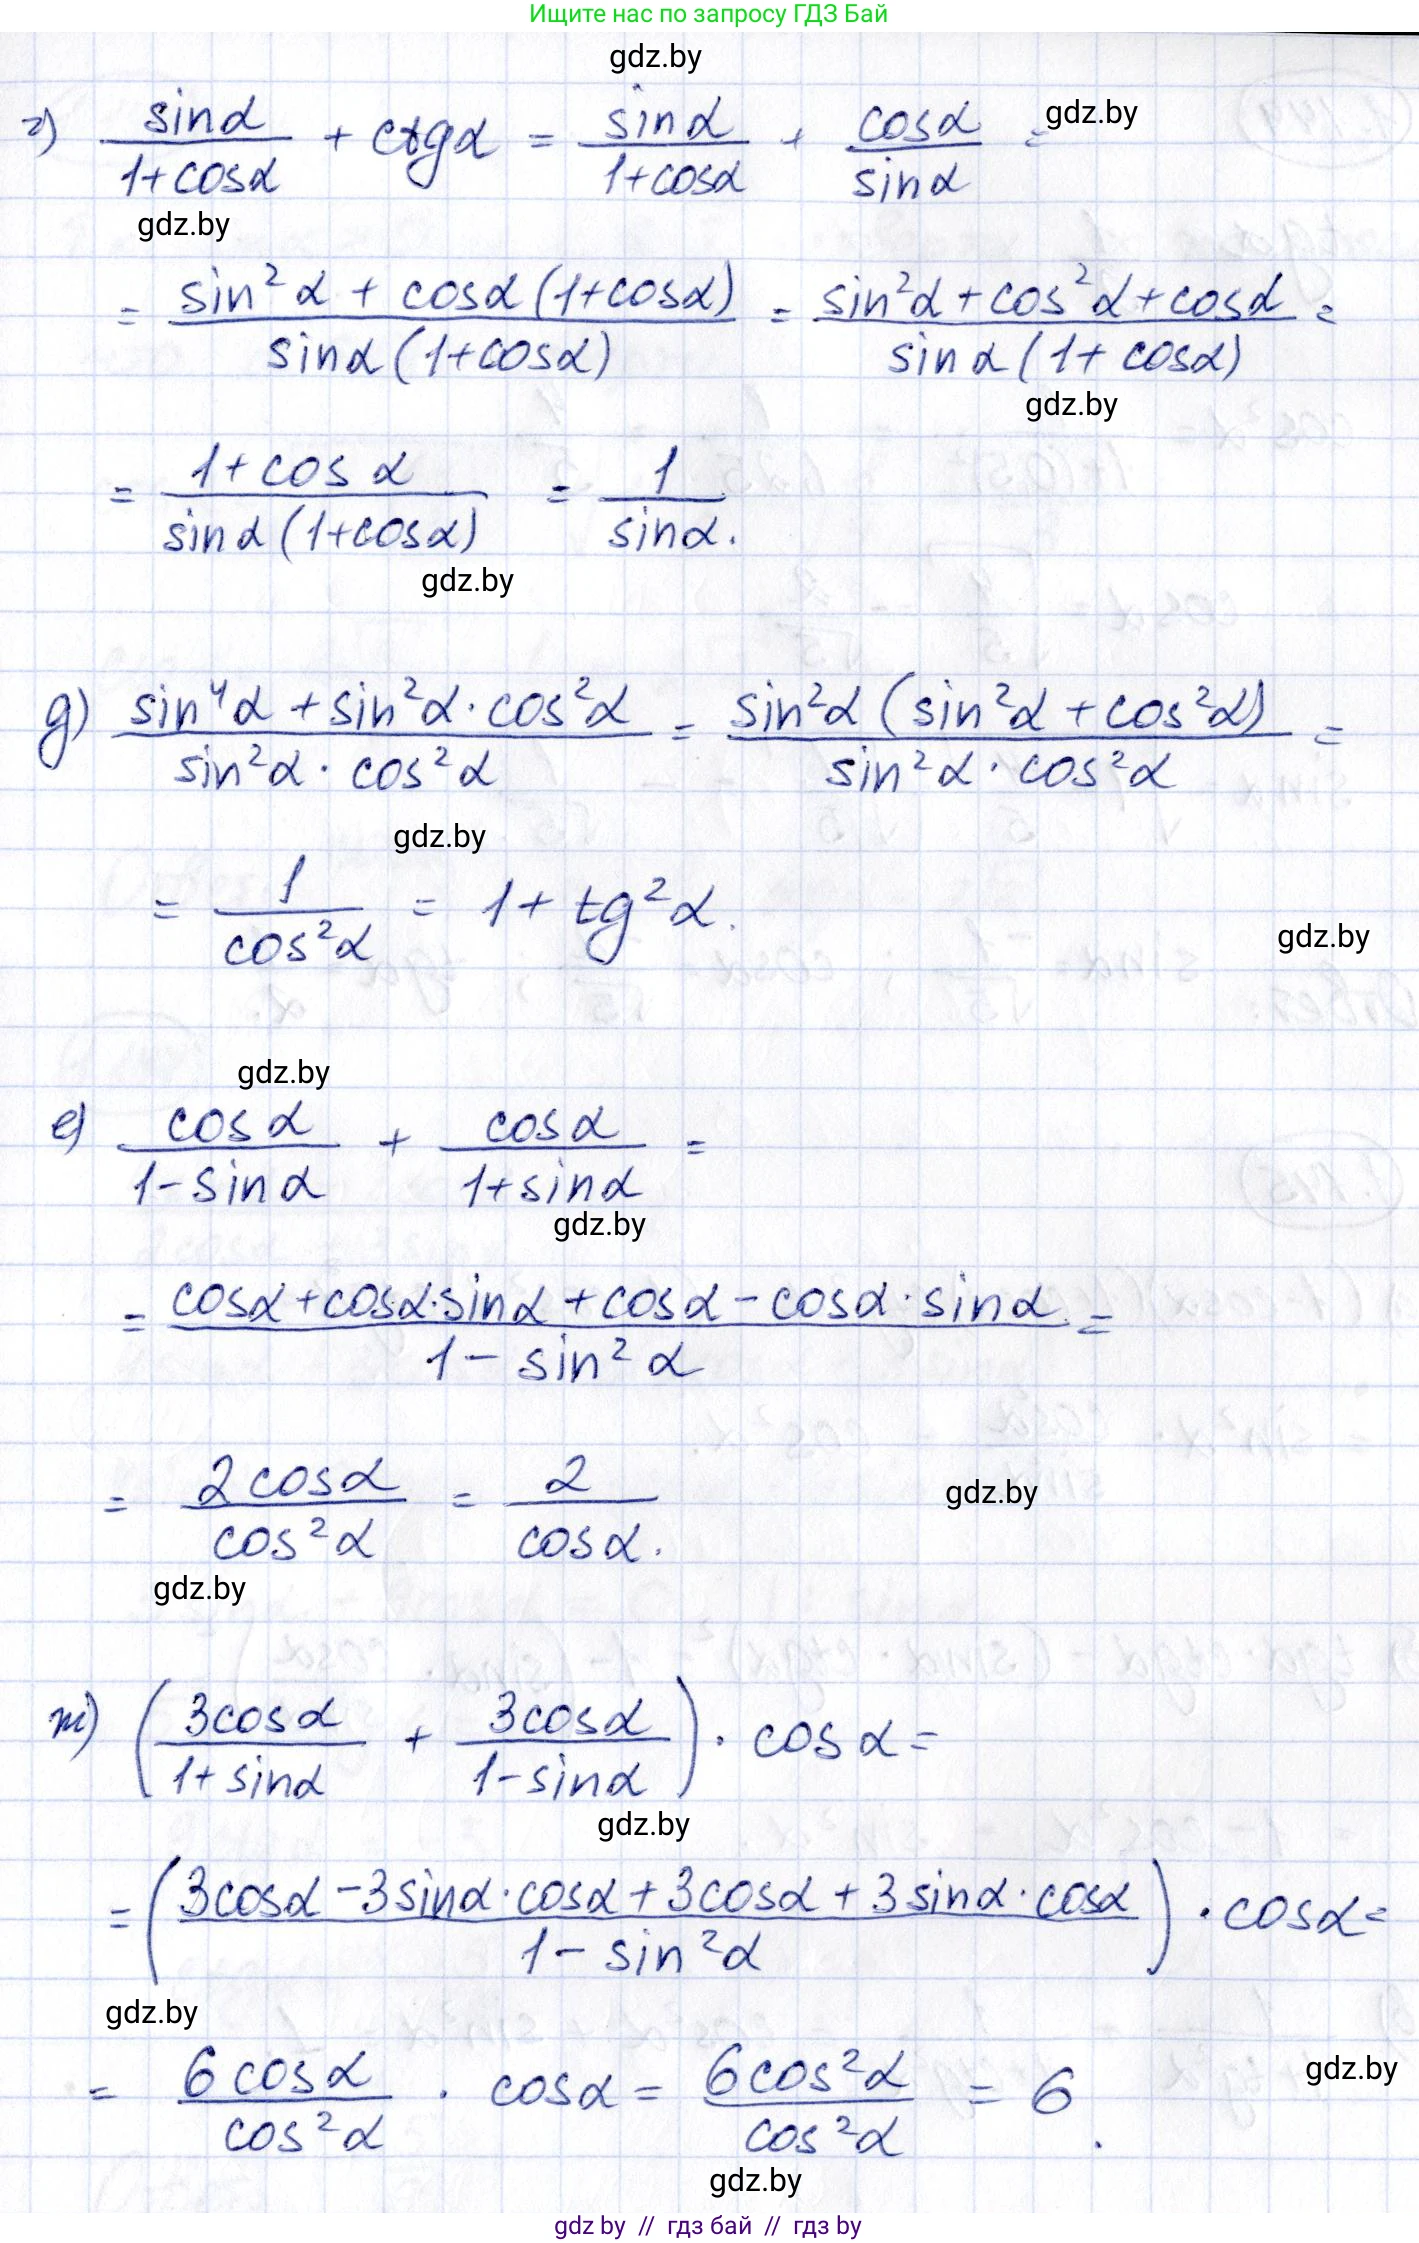 Ищите нас по запросу ГДЗ Бай
gdz.by
г) sinα/(1+cosα) + ctgα = sinα/(1+cosα) + cosα/sinα =
gdz.by
gdz.by
= (sin²α + cosα(1+cosα))/(sinα(1+cosα)) = (sin²α+cos²α+cosα)/(sinα(1+cosα)) =
gdz.by
= (1+cosα)/(sinα(1+cosα)) = 1/sinα.
gdz.by
д) (sin⁴α+sin²α·cos²α)/(sin²α·cos²α) = (sin²α(sin²α+cos²α))/(sin²α·cos²α) =
gdz.by
= 1/cos²α = 1+tg²α.
gdz.by
gdz.by
е) cosα/(1-sinα) + cosα/(1+sinα) =
gdz.by
= (cosα+cosα·sinα+cosα-cosα·sinα)/(1-sin²α) =
= 2cosα/cos²α = 2/cosα.
gdz.by
gdz.by
ж) (3cosα/(1+sinα) + 3cosα/(1-sinα))·cosα=
gdz.by
= ((3cosα-3sinα·cosα+3cosα+3sinα·cosα)/(1-sin²α))·cosα=
gdz.by
= 6cosα/cos²α · cosα = 6cos²α/cos²α = 6.
gdz.by
gdz.by
gdz by // гдз бай // гдз by